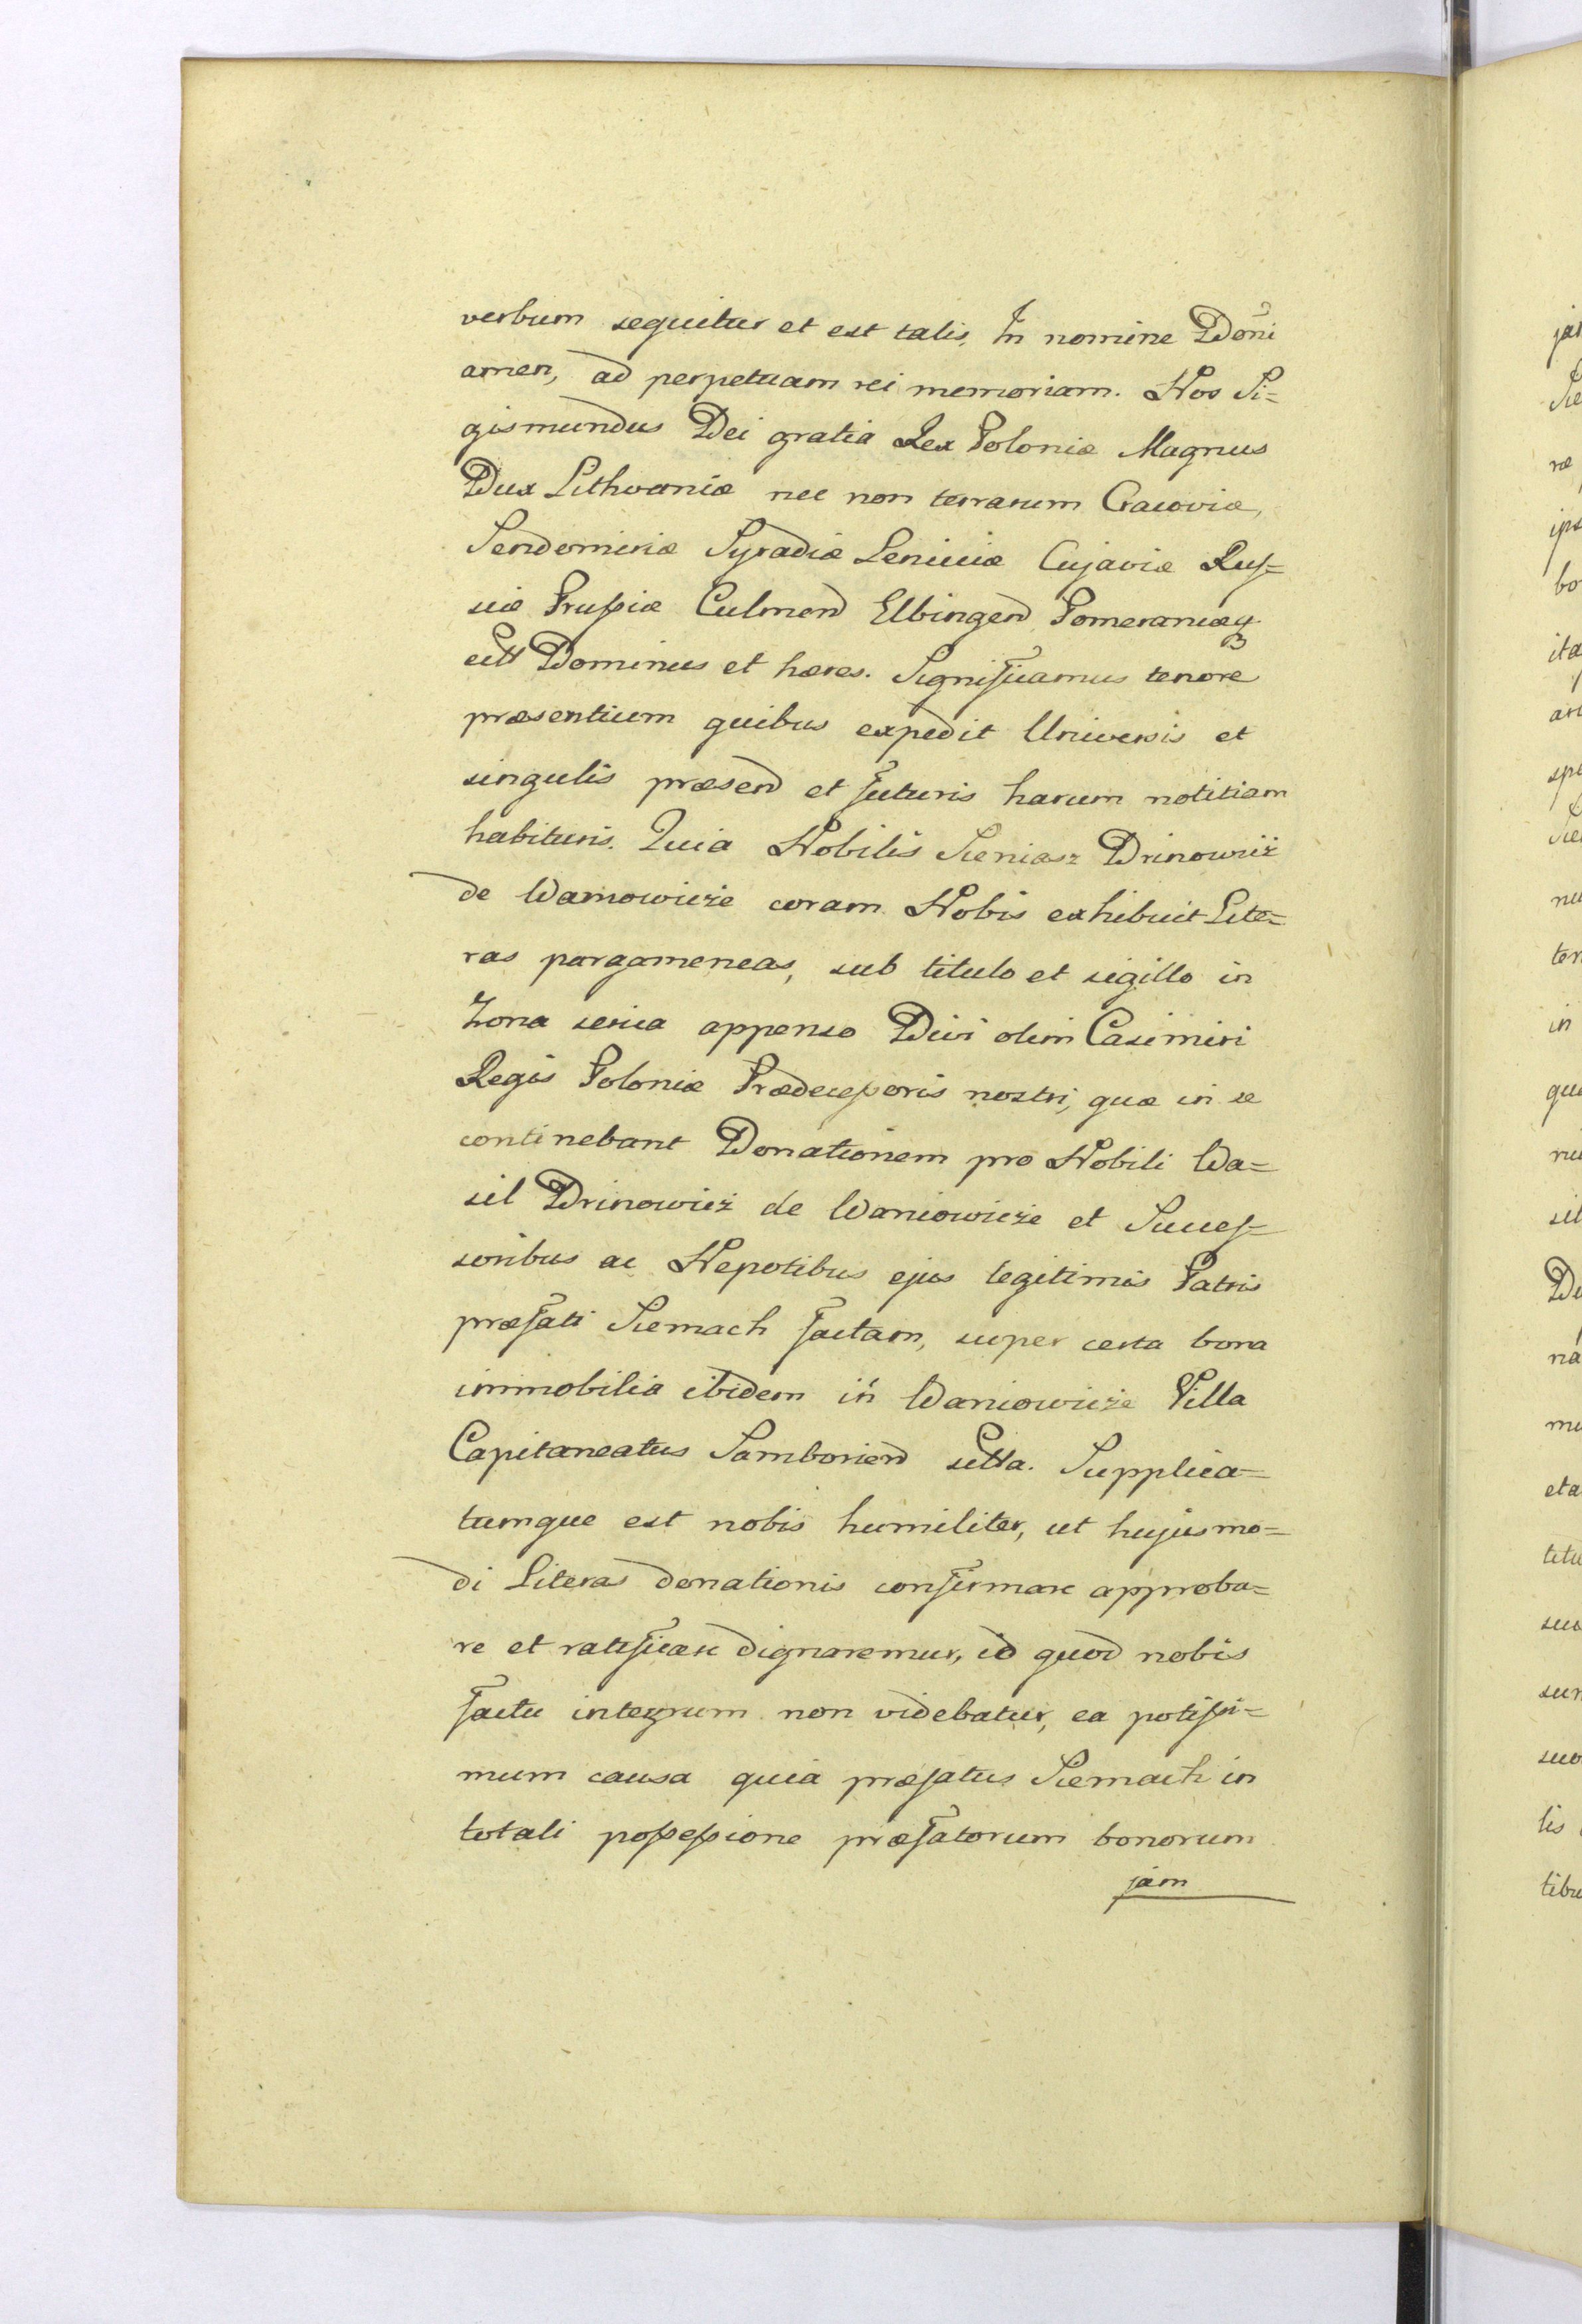 verbum sequitur et est talis, In nomine Dōni
amen, ad perpetuam rei memoriam. Nos Si=
gismundus Dei gratia Rex Poloniæ Magnus
Dux Lithvaniæ nec non terrarum Cracoviæ,
Sendomiriæ Syradiæ Lenciciæ Cujaviæ Rus=
siæ Prussiæ Culmen Elbingen Pomeraniæq
ett Dominus et hæres. Significamus tenore
præsentium quibus expedit Universis et
singulis præsen et futuris harum notitiam
habituris. Quia Nobilis Sieniasz Drinowicz
de Waniowicze coram Nobis exhibuit Lite=
ras pargameneas, sub titulo et sigillo in
Zona serica appenso Divi olim Casimiri
Regis Poloniæ Prædecessoris nostri, quæ in se
continebant Donationem pro Nobili Wa=
sil Drinowicz de Waniowicze et Succes=
soribus ac Nepotibus ejus legitimis Patris
præfati Siemach factam, super certa bona
immobilia ibidem in Waniowicze Villa
Capitaneatus Samborien sitta. Supplica=
tumque est nobis humiliter, ut hujusmo=
di Literas donationis confirmare approba=
re et ratificare dignaremur, id quod nobis
factu integrum non videbatur, ea potissi=
mum causa quia præfatus Siemach in
totali possessione præfatorum bonorum
jam